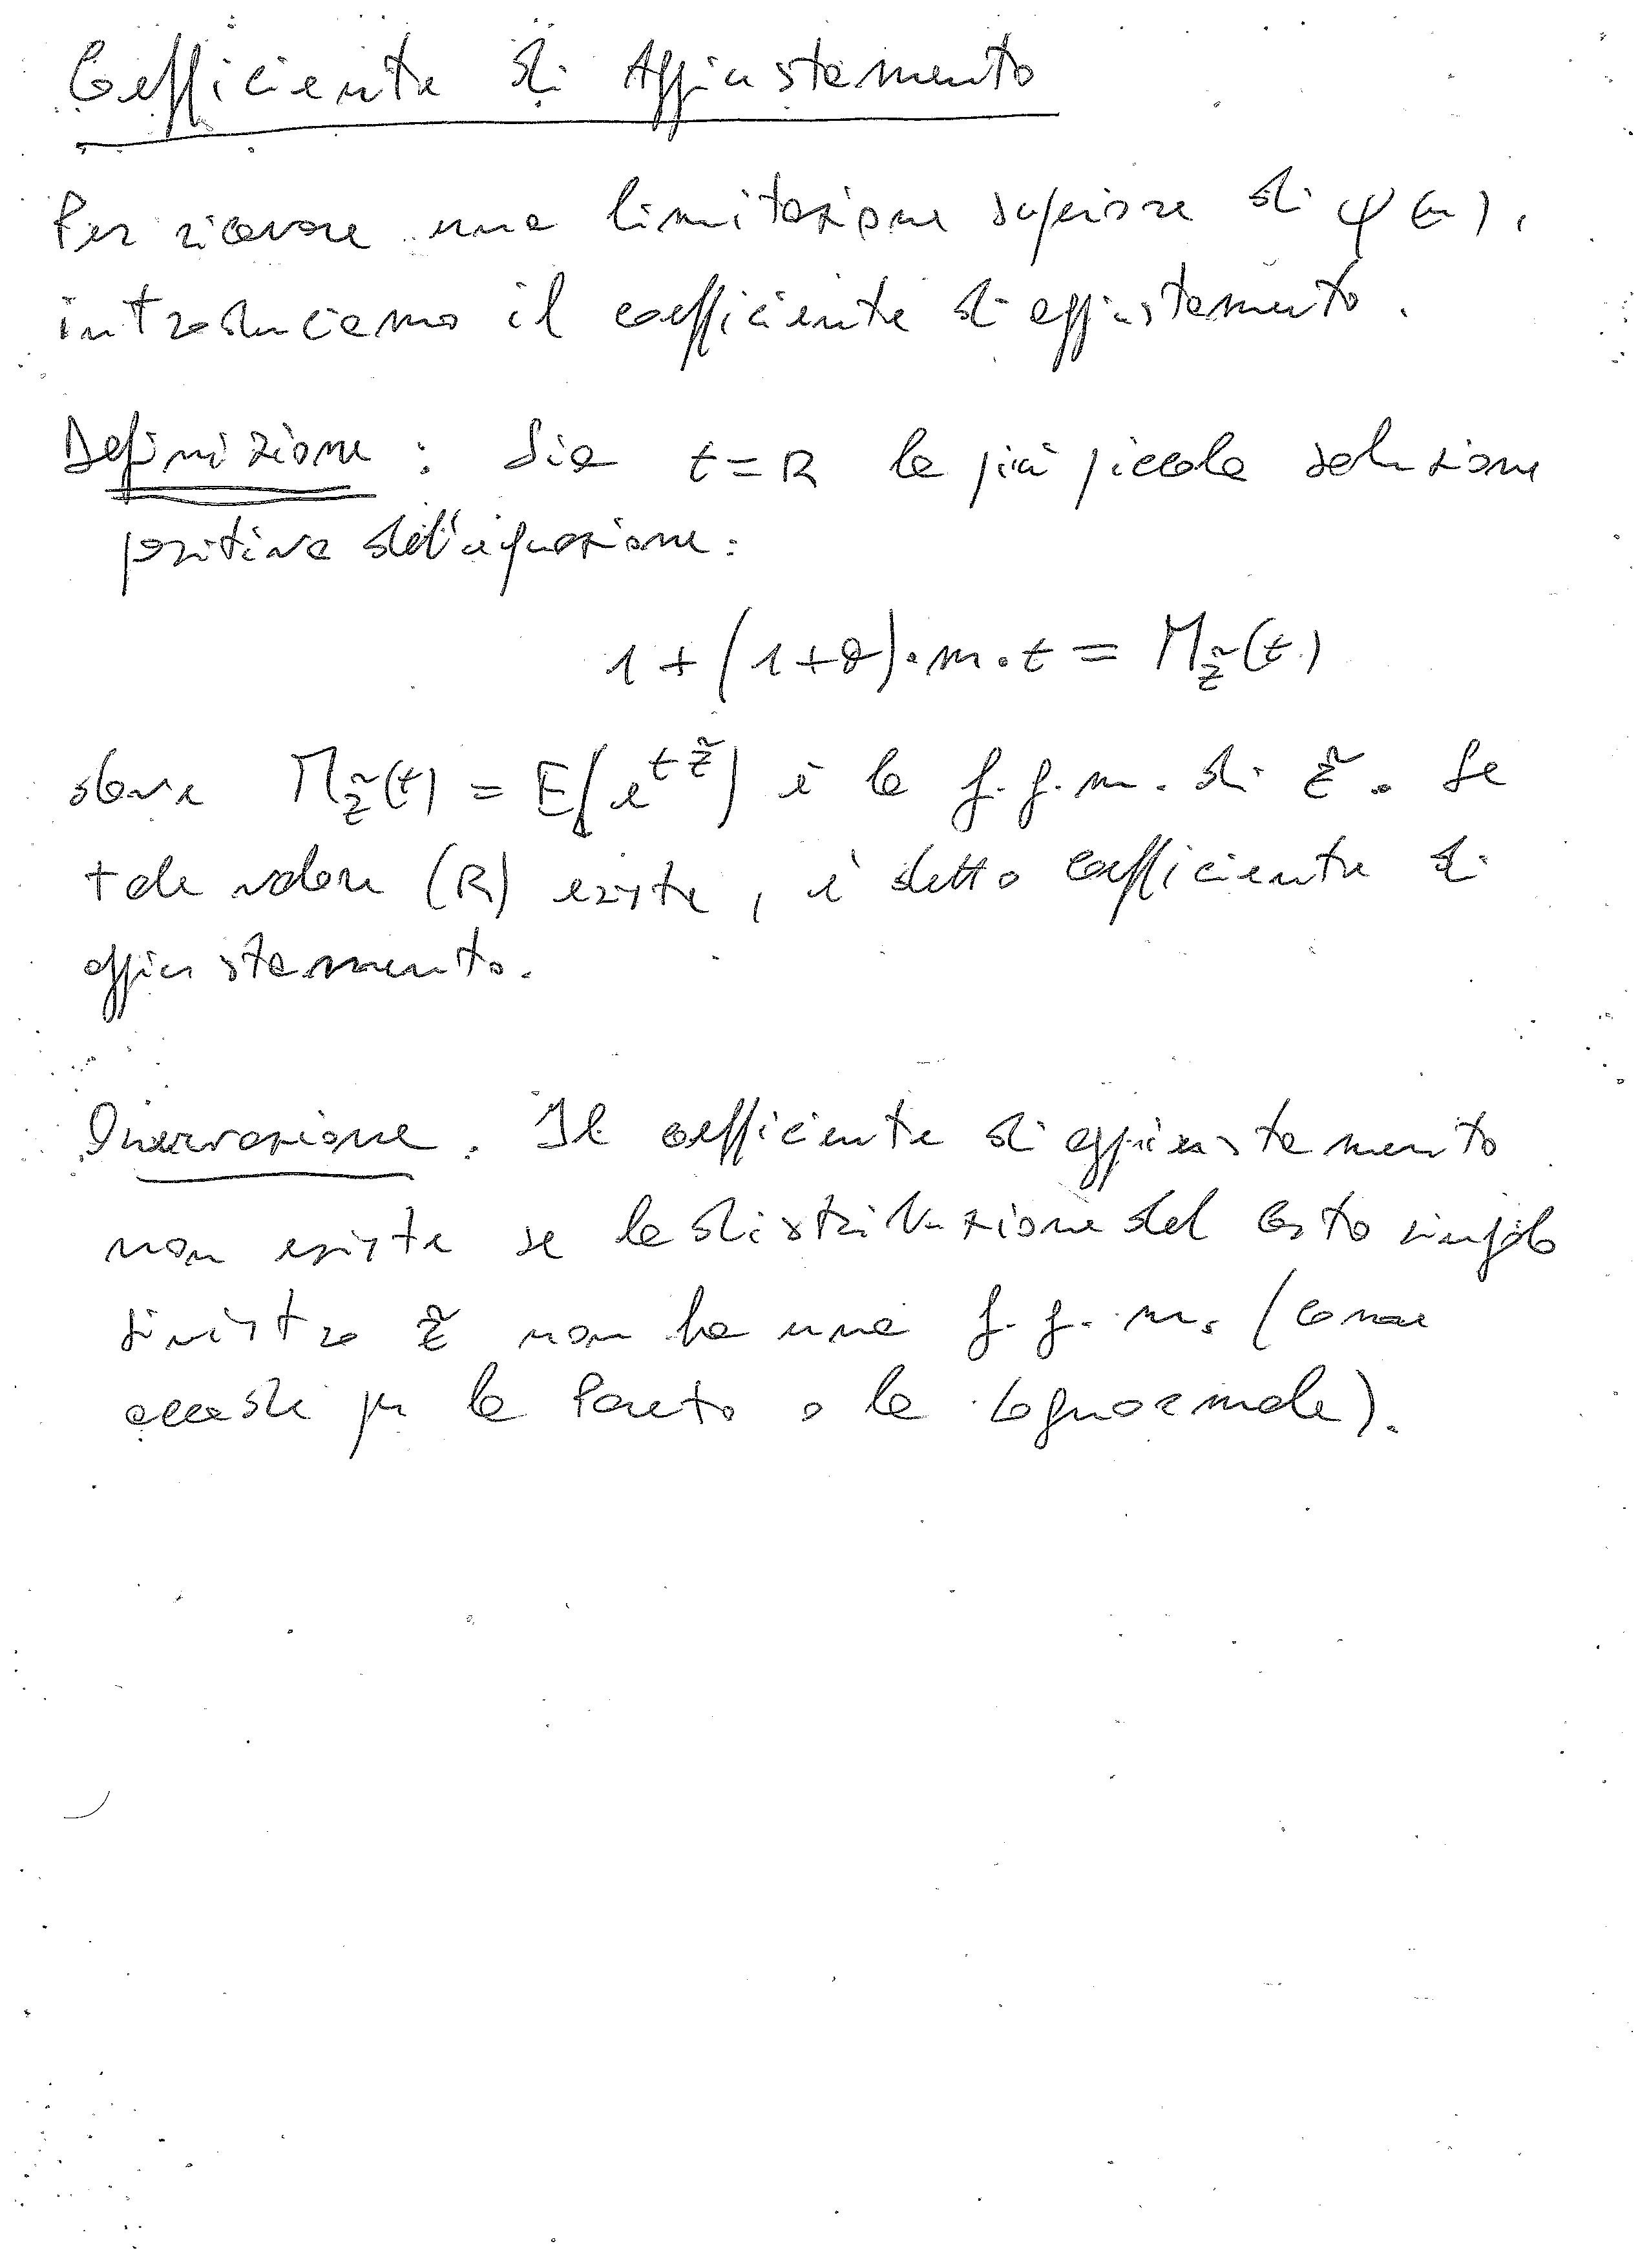 Coefficiente di Aggiustamento
Per ricavare una limitazione superiore di ψ(u),
introduciamo il coefficiente di aggiustamento.
Definizione : Sia t=R la più piccola soluzione
positiva dell'equazione:
1+(1+θ)·m·t = M_z̃(t)
dove M_z̃(t) = E(e^{t z̃}) è la f.g.m. di z̃. Se
tale valore (R) esiste, è detto coefficiente di
aggiustamento.
Osservazione. Il coefficiente di aggiustamento
non esiste se la distribuzione del costo singolo
sinistro z̃ non ha una f.g.m. (come
accade per la Pareto o la Lognormale).